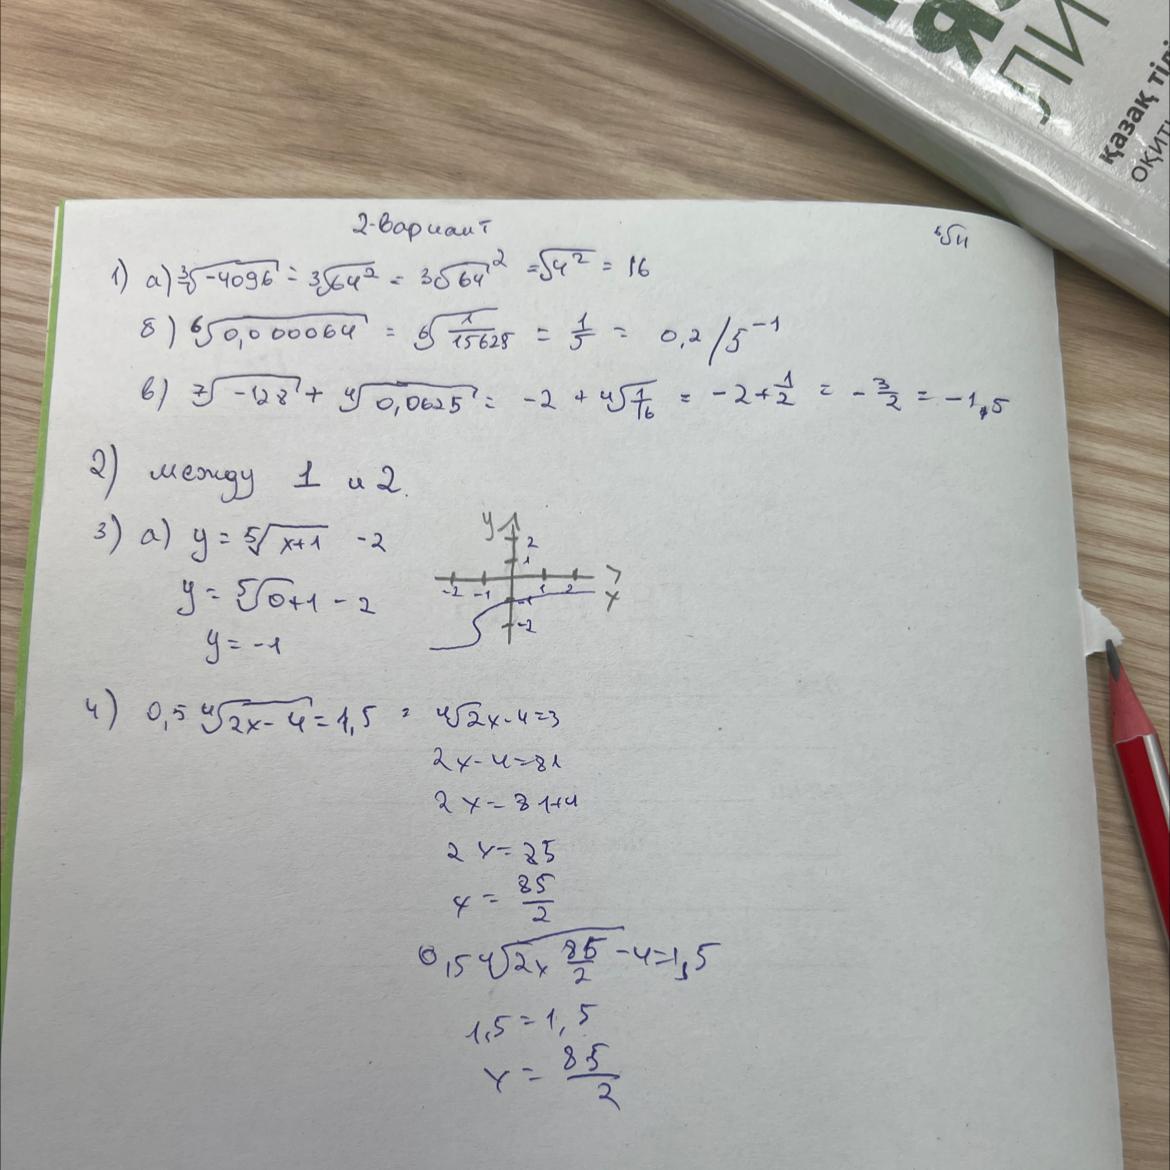 ИЛ
ЕЯ
қазақ тілі
ОҚИТЫ
2-вариант
⁶√11
1) а) ³√-4096 = ³√64² = ³√64² = √4² = 16
б) ⁶√0,000064 = ⁶√1/15625 = 1/5 = 0,2/5⁻¹
в) ⁷√-128 + ⁴√0,0625 = -2 + ⁴√1/16 = -2+1/2 = -3/2 = -1,5
2) между 1 и 2.
3) а) y = ⁵√x+1 -2
y = ⁵√0+1 - 2
y = -1
y
2
1
-2 -1 1 2
x
-1
-2
4) 0,5 ⁴√2x-4 = 1,5 = ⁴√2x-4=3
2x-4=81
2x=81+4
2x=85
x = 85/2
0,5 ⁴√2x 85/2 -4=1,5
1,5=1,5
x = 85/2